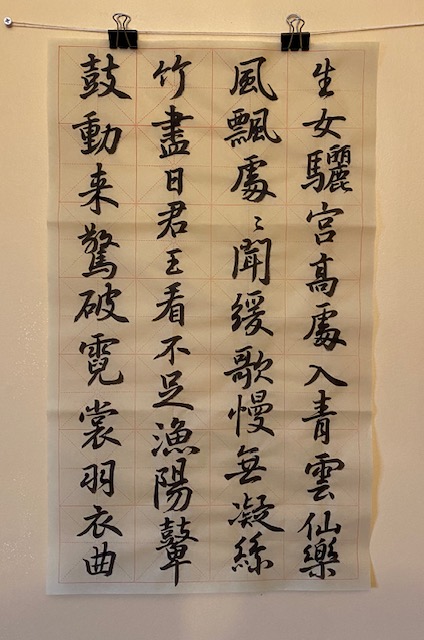 生女驪宮高處入青雲仙樂
風飄處〻聞緩歌慢無凝絲
竹盡日君王看不足漁陽鼙
鼓動来驚破霓裳羽衣曲